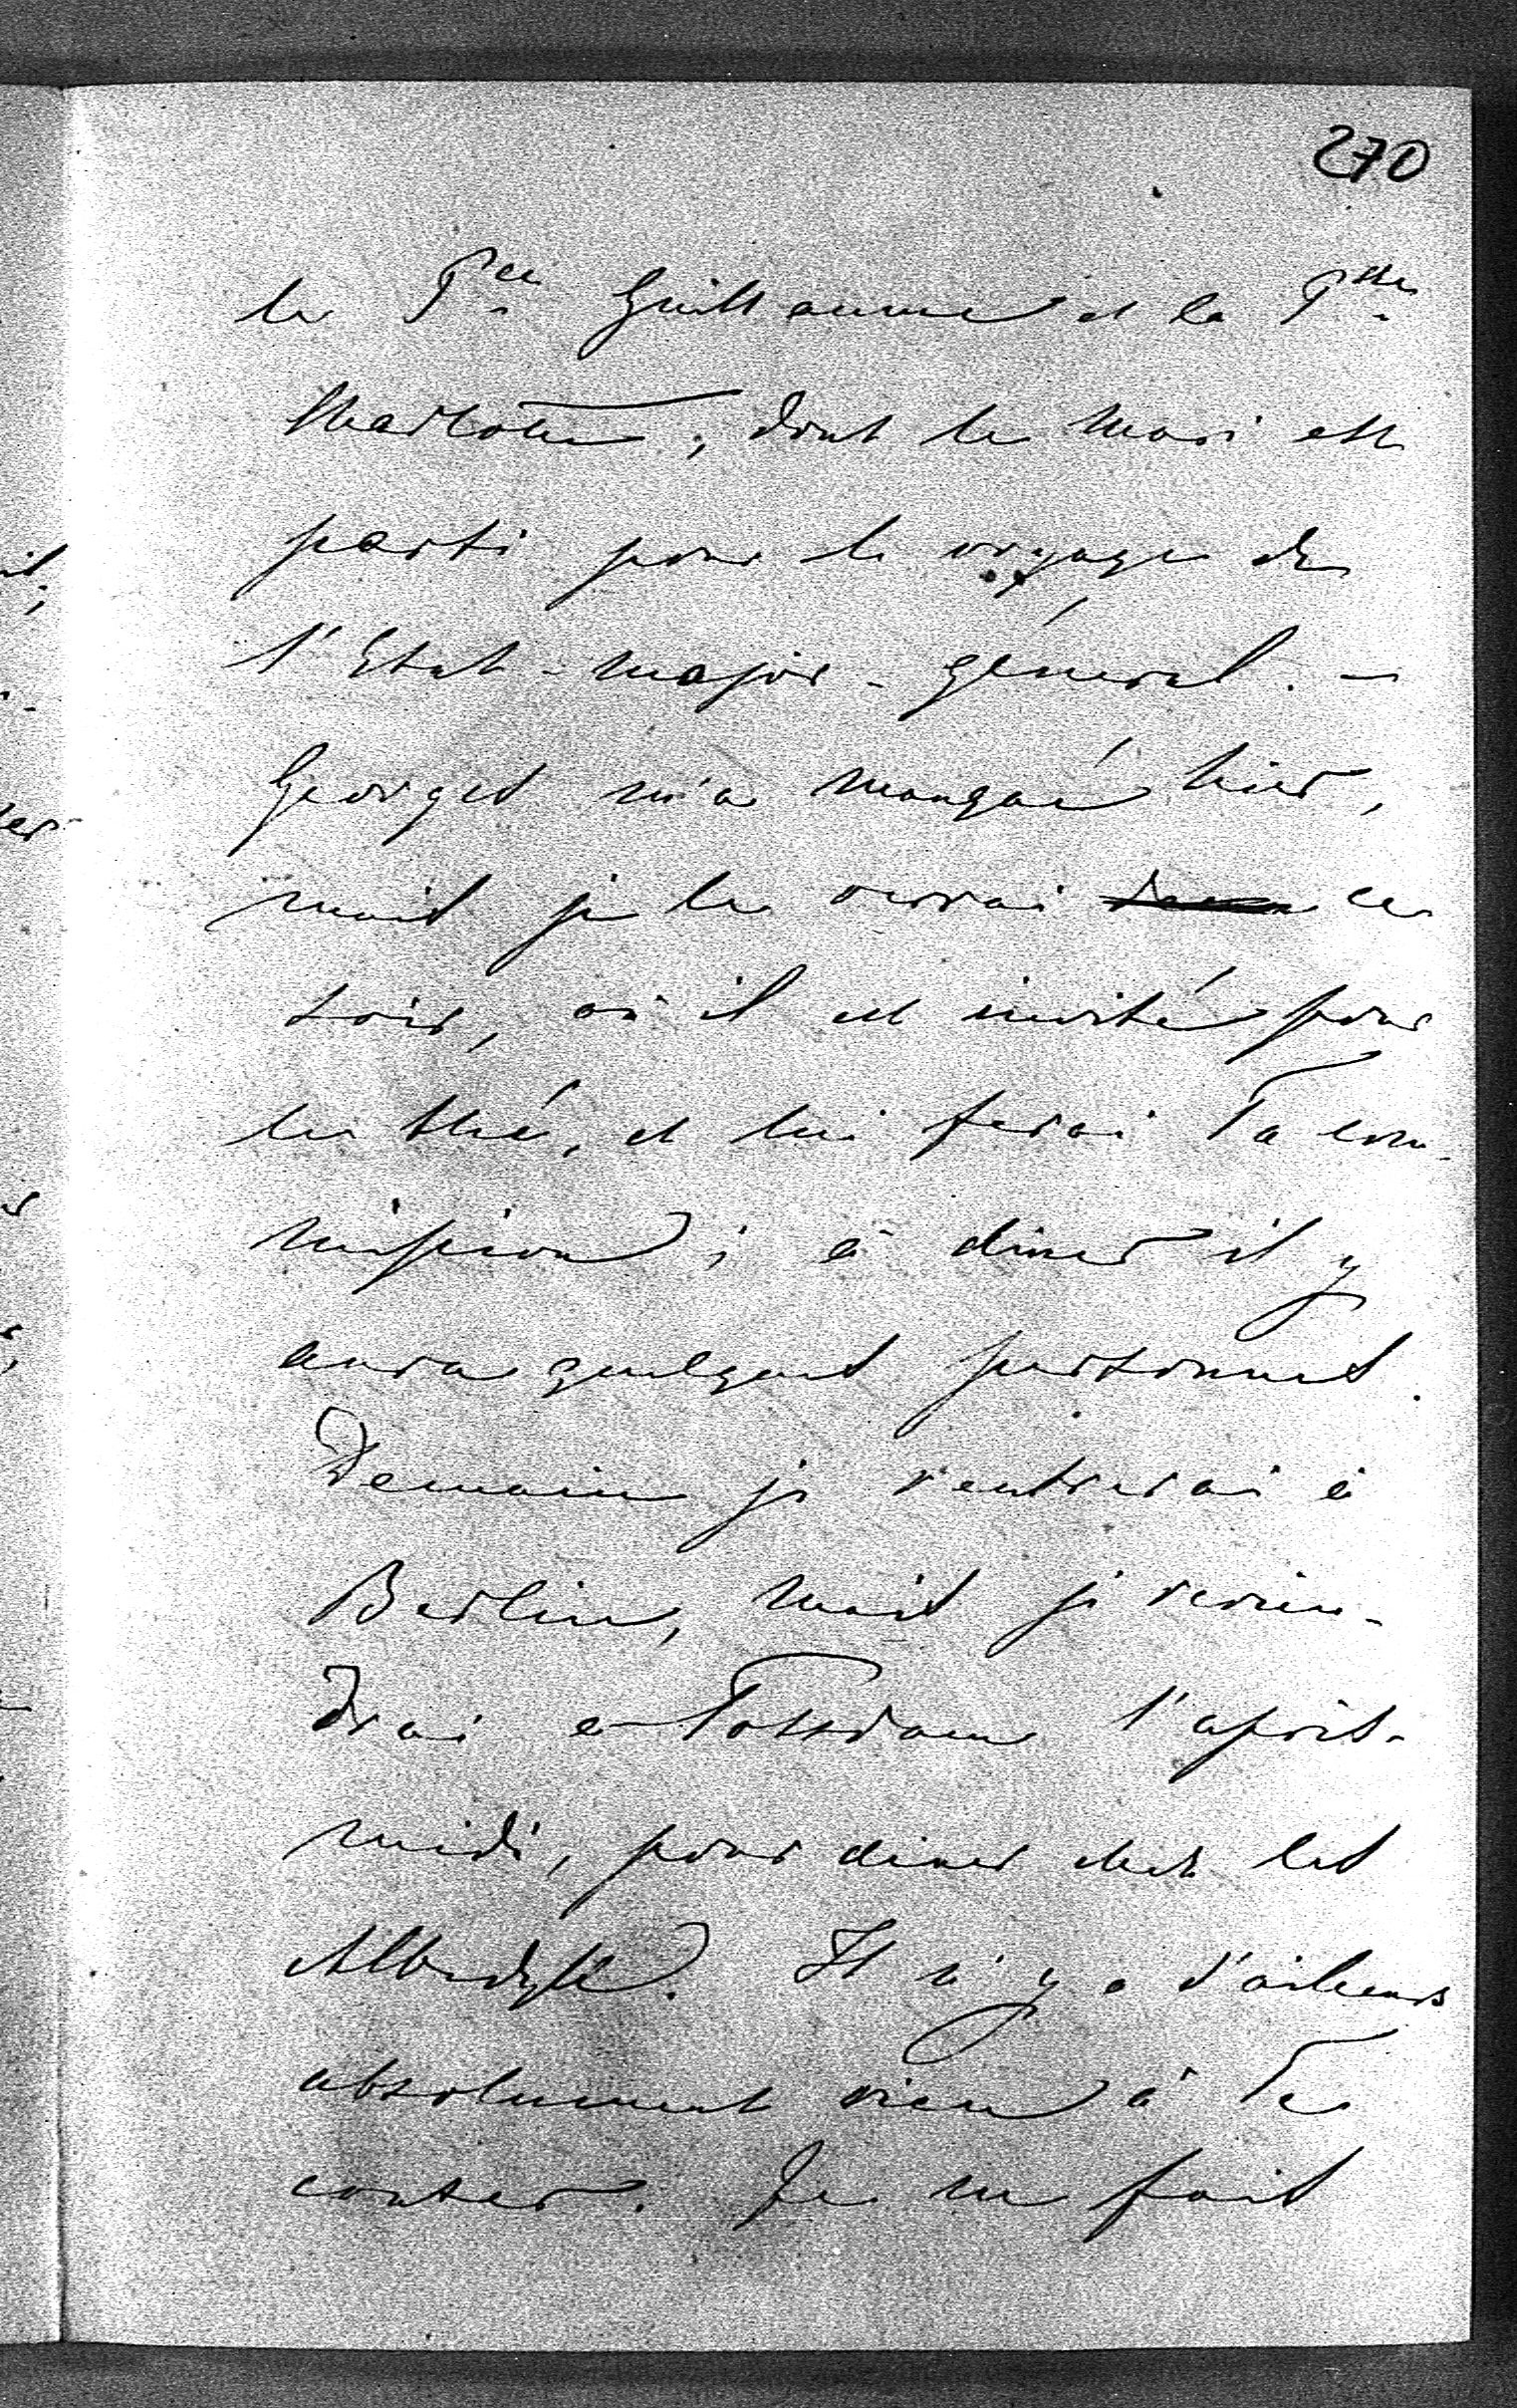 270
le Pce Guillaume et la Psse
Charlotte, dont le mari est
parti pour le voyage de
l'Etat-major-général. -
Georges m'a manqué hier,
mais je le verrai ce
soir, où il est invité pour
le thé, et lui ferai Ta com-
mission; à diner il y
aura quelques personnes.
Demain je rentrerai à
Berlin, mais je revien-
drai à Potsdam l'après-
midi, pour diner chez les
Albedyll. Il n'y a d'ailleurs
absolument rien à Te
conter. Je ne fais